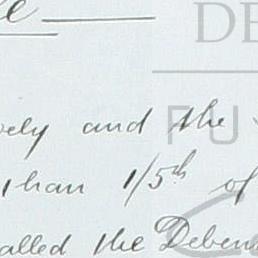 DE
ely and the FU
than 1/5th of
alled the Deben